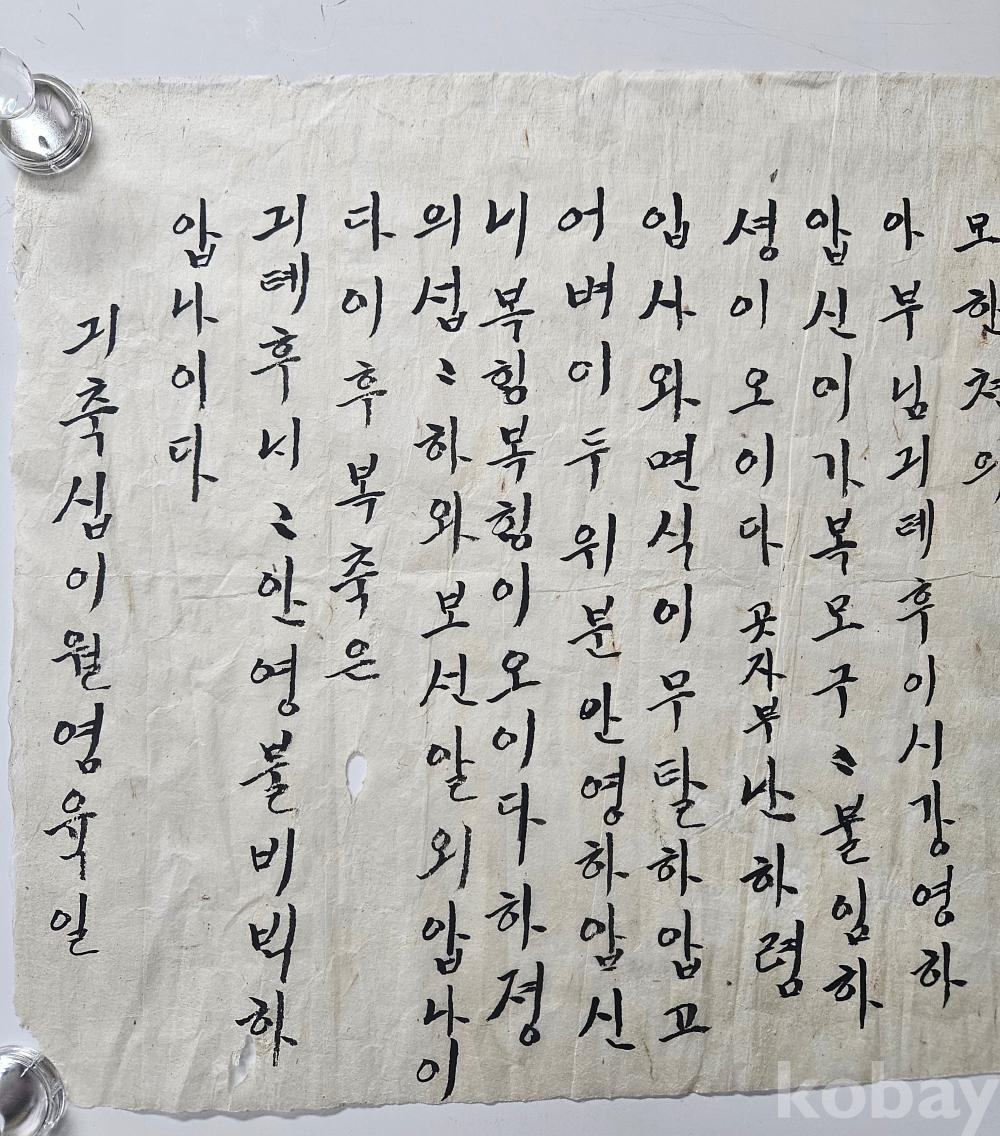 모한형의
아부님긔톄후이시강영하
압신이가복모구〻불임하
셩이오이다곳자부난하렴
입사와면식이무탈하압고
어벼이두위분안영하압신
니복힝복힝이오이다하졍
의섭〻하와보선알외압나이
다이후복축은
긔톄후시〻안영불비빅하
압나이다
긔축십이월염육일
kobay